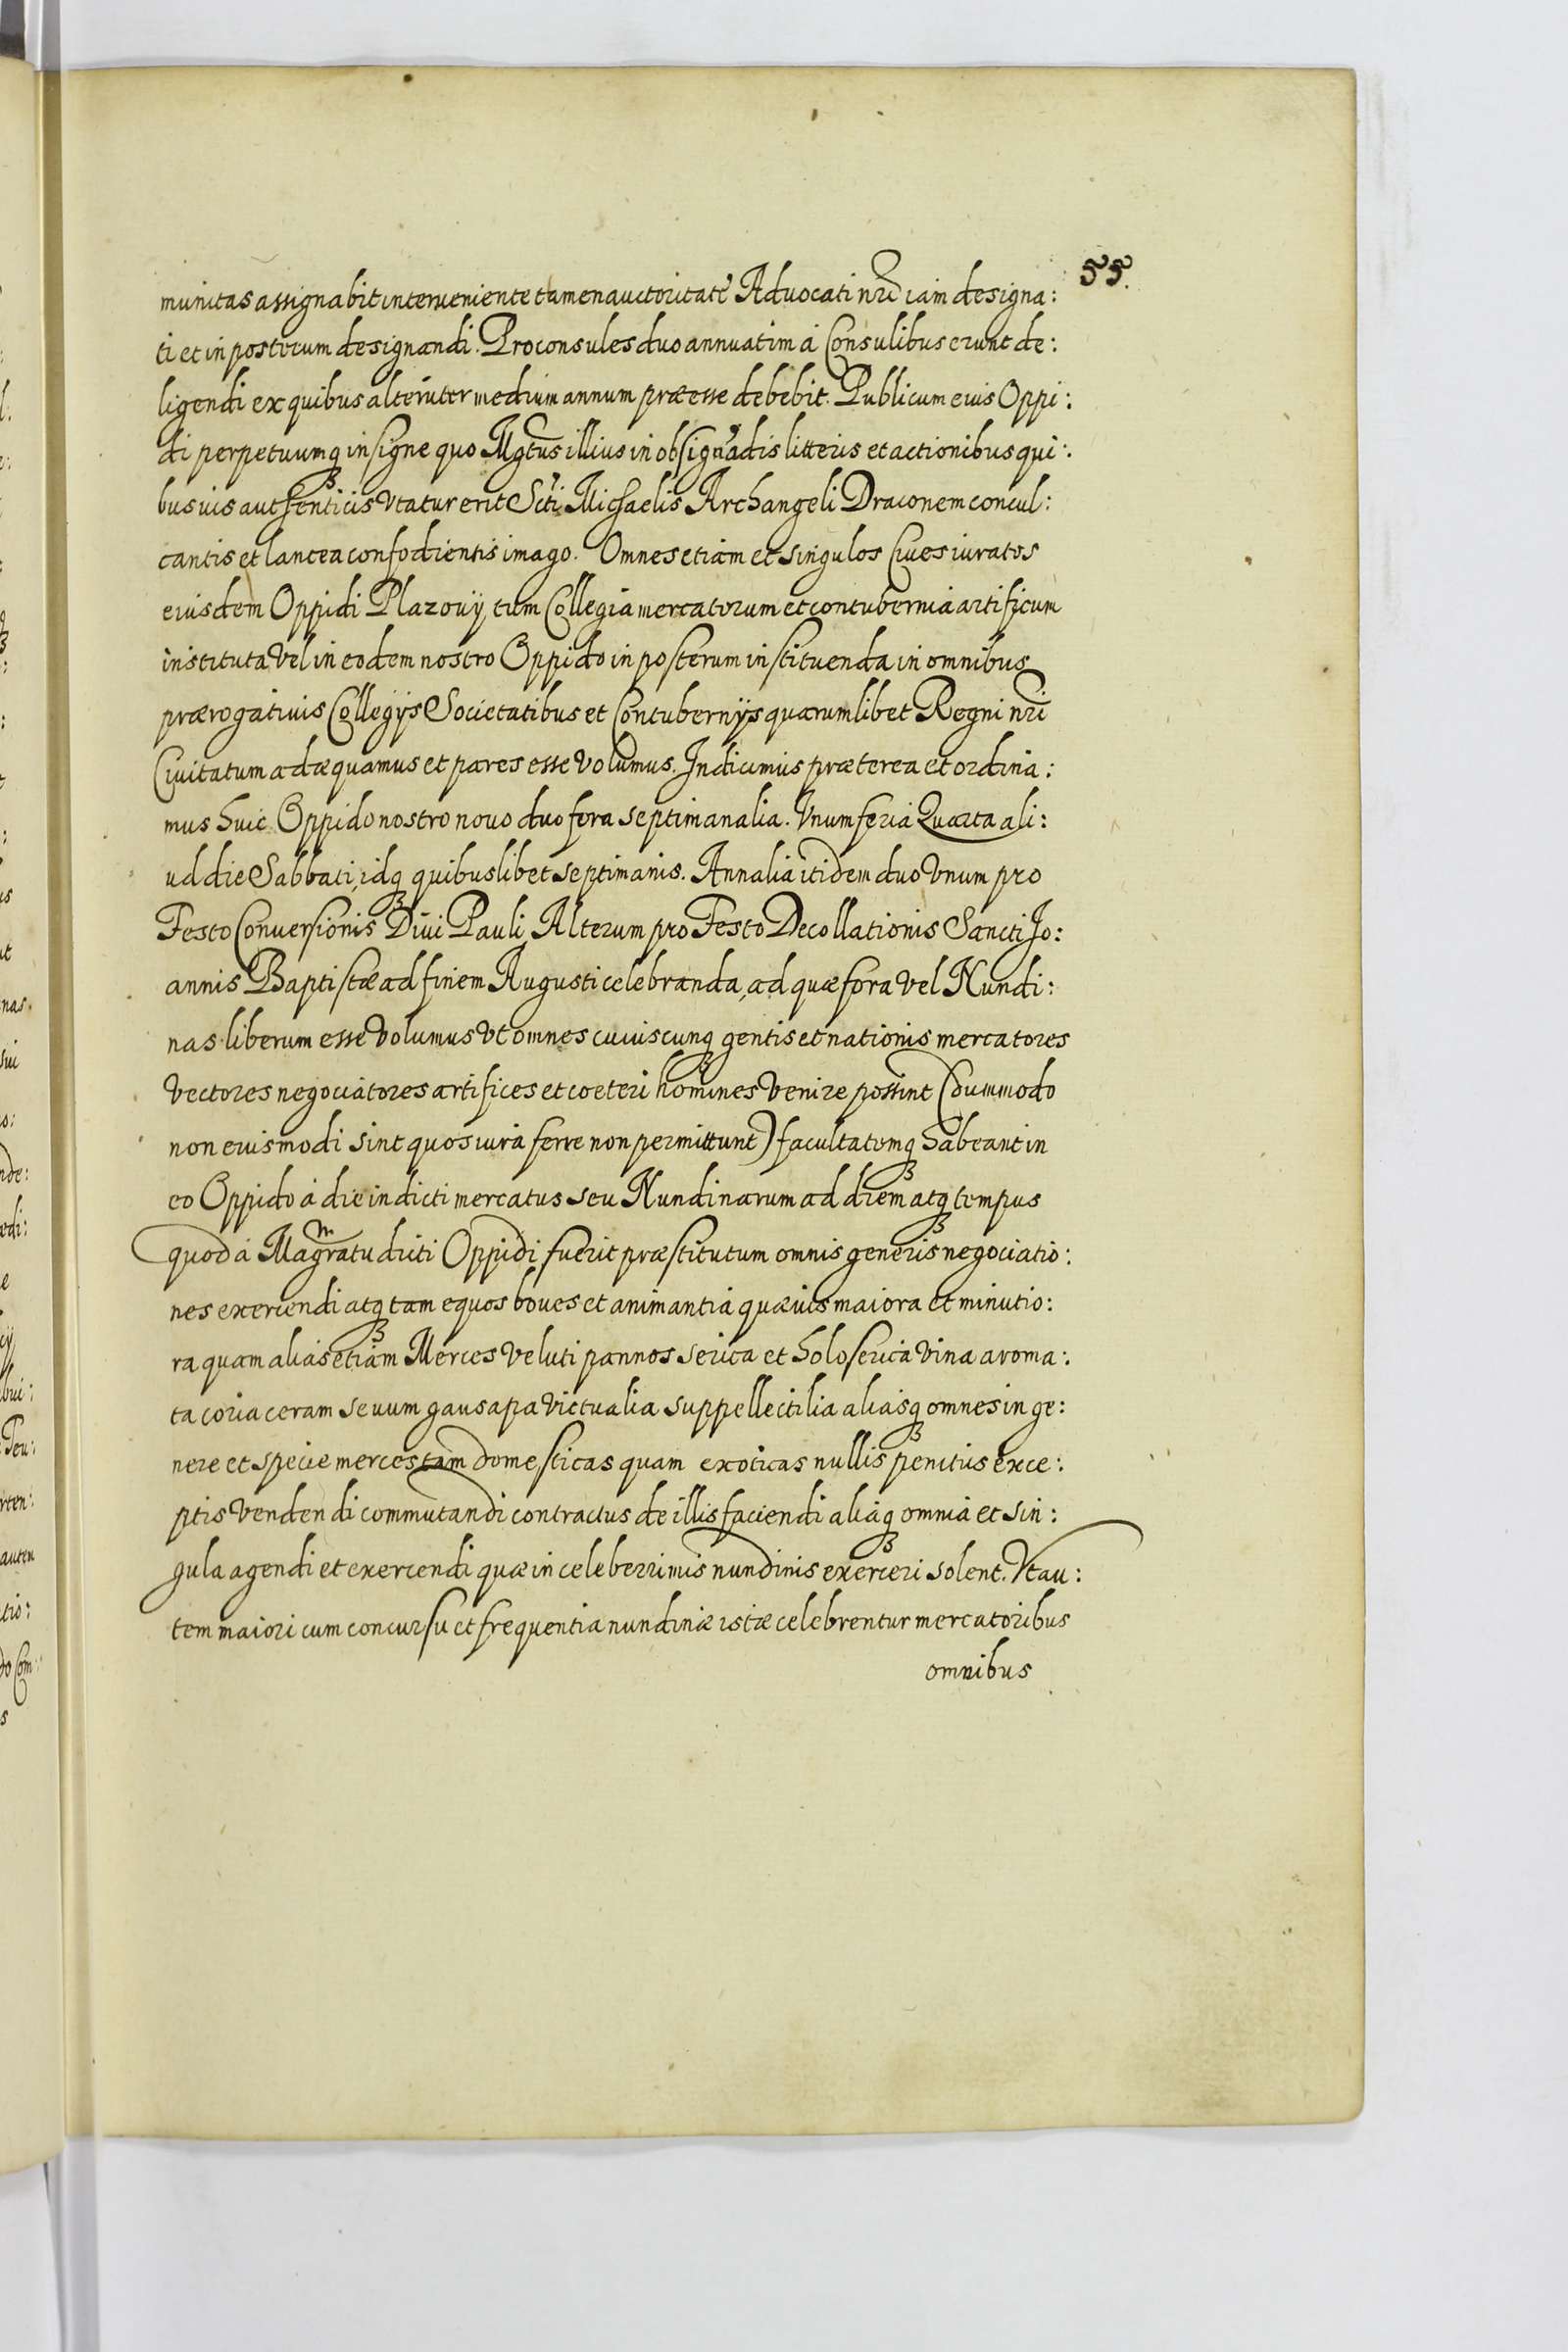 55.
munitas assignabit interveniente tamen auctoritate Advocati nrī iam designa:
ti et in postrum designandi. Proconsules duo annuatim á Consulibus erunt de:
ligendi ex quibus alteruter medium annum præesse debebit. Publicum eius Oppi:
di perpetuumqȝ insigne quo Mgtus illius in obsignādis litteris et actionibus qui:
busuis authenticis vtatur erit Scti Michaelis Archangeli Draconem concul:
cantis et lancea confodientis imago. Omnes etiam et singulos Ciues iuratos
eiusdem Oppidi Plazouij, tum Collegia mercatorum et contubernia artificum
instituta vel in eodem nostro Oppido in posterum instituenda in omnibus
prærogatiuis Collegijs Societatibus et Contubernijs quarumlibet Regni nrī
Ciuitatum adæquamus et pares esse volumus. Indicimus præterea et ordina:
mus huic Oppido nostro nouo duo fora septimanalia. Vnum feria Quarta ali:
ud die Sabbati, idqȝ quibuslibet septimanis. Annalia itidem duo vnum pro
Festo Conuersionis Diui Pauli, Alterum pro Festo Decollationis Sancti Jo:
annis Baptistæ ad finem Augusti celebranda, ad quæ fora vel Nundi:
nas liberum esse volumus vt omnes cuiuscunqȝ gentis et nationis mercatores
vectores negociatores artifices et coeteri homines venire possint (dummodo
non eiusmodi sint quos iura ferre non permittunt) facultatemqȝ habeant in
eo Oppido á die indicti mercatus seu Nundinarum ad diem atqȝ tempus
quod á Magratu dicti Oppidi fuerit præstitutum omnis generis negociatio:
nes exercendi atqȝ tam equos boues et animantia quæuis maiora et minutio:
ra quam alias etiam Merces veluti pannos serica et holoserica vina aroma:
ta coria ceram sevum gausapa victualia suppellectilia aliasqȝ omnes in ge:
nere et specie merces tam domesticas quam exoticas nullis penitus exce:
ptis vendendi commutandi contractus de illis faciendi aliaqȝ omnia et sin:
gula agendi et exercendi quæ in celeberrimis nundinis exerceri solent. Vt au:
tem maiori cum concursu et frequentia nundinæ istæ celebrentur mercatoribus
omnibus